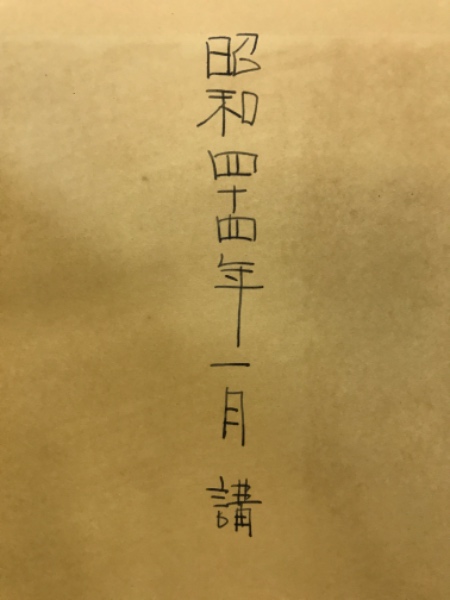 昭和四十四年一月 講